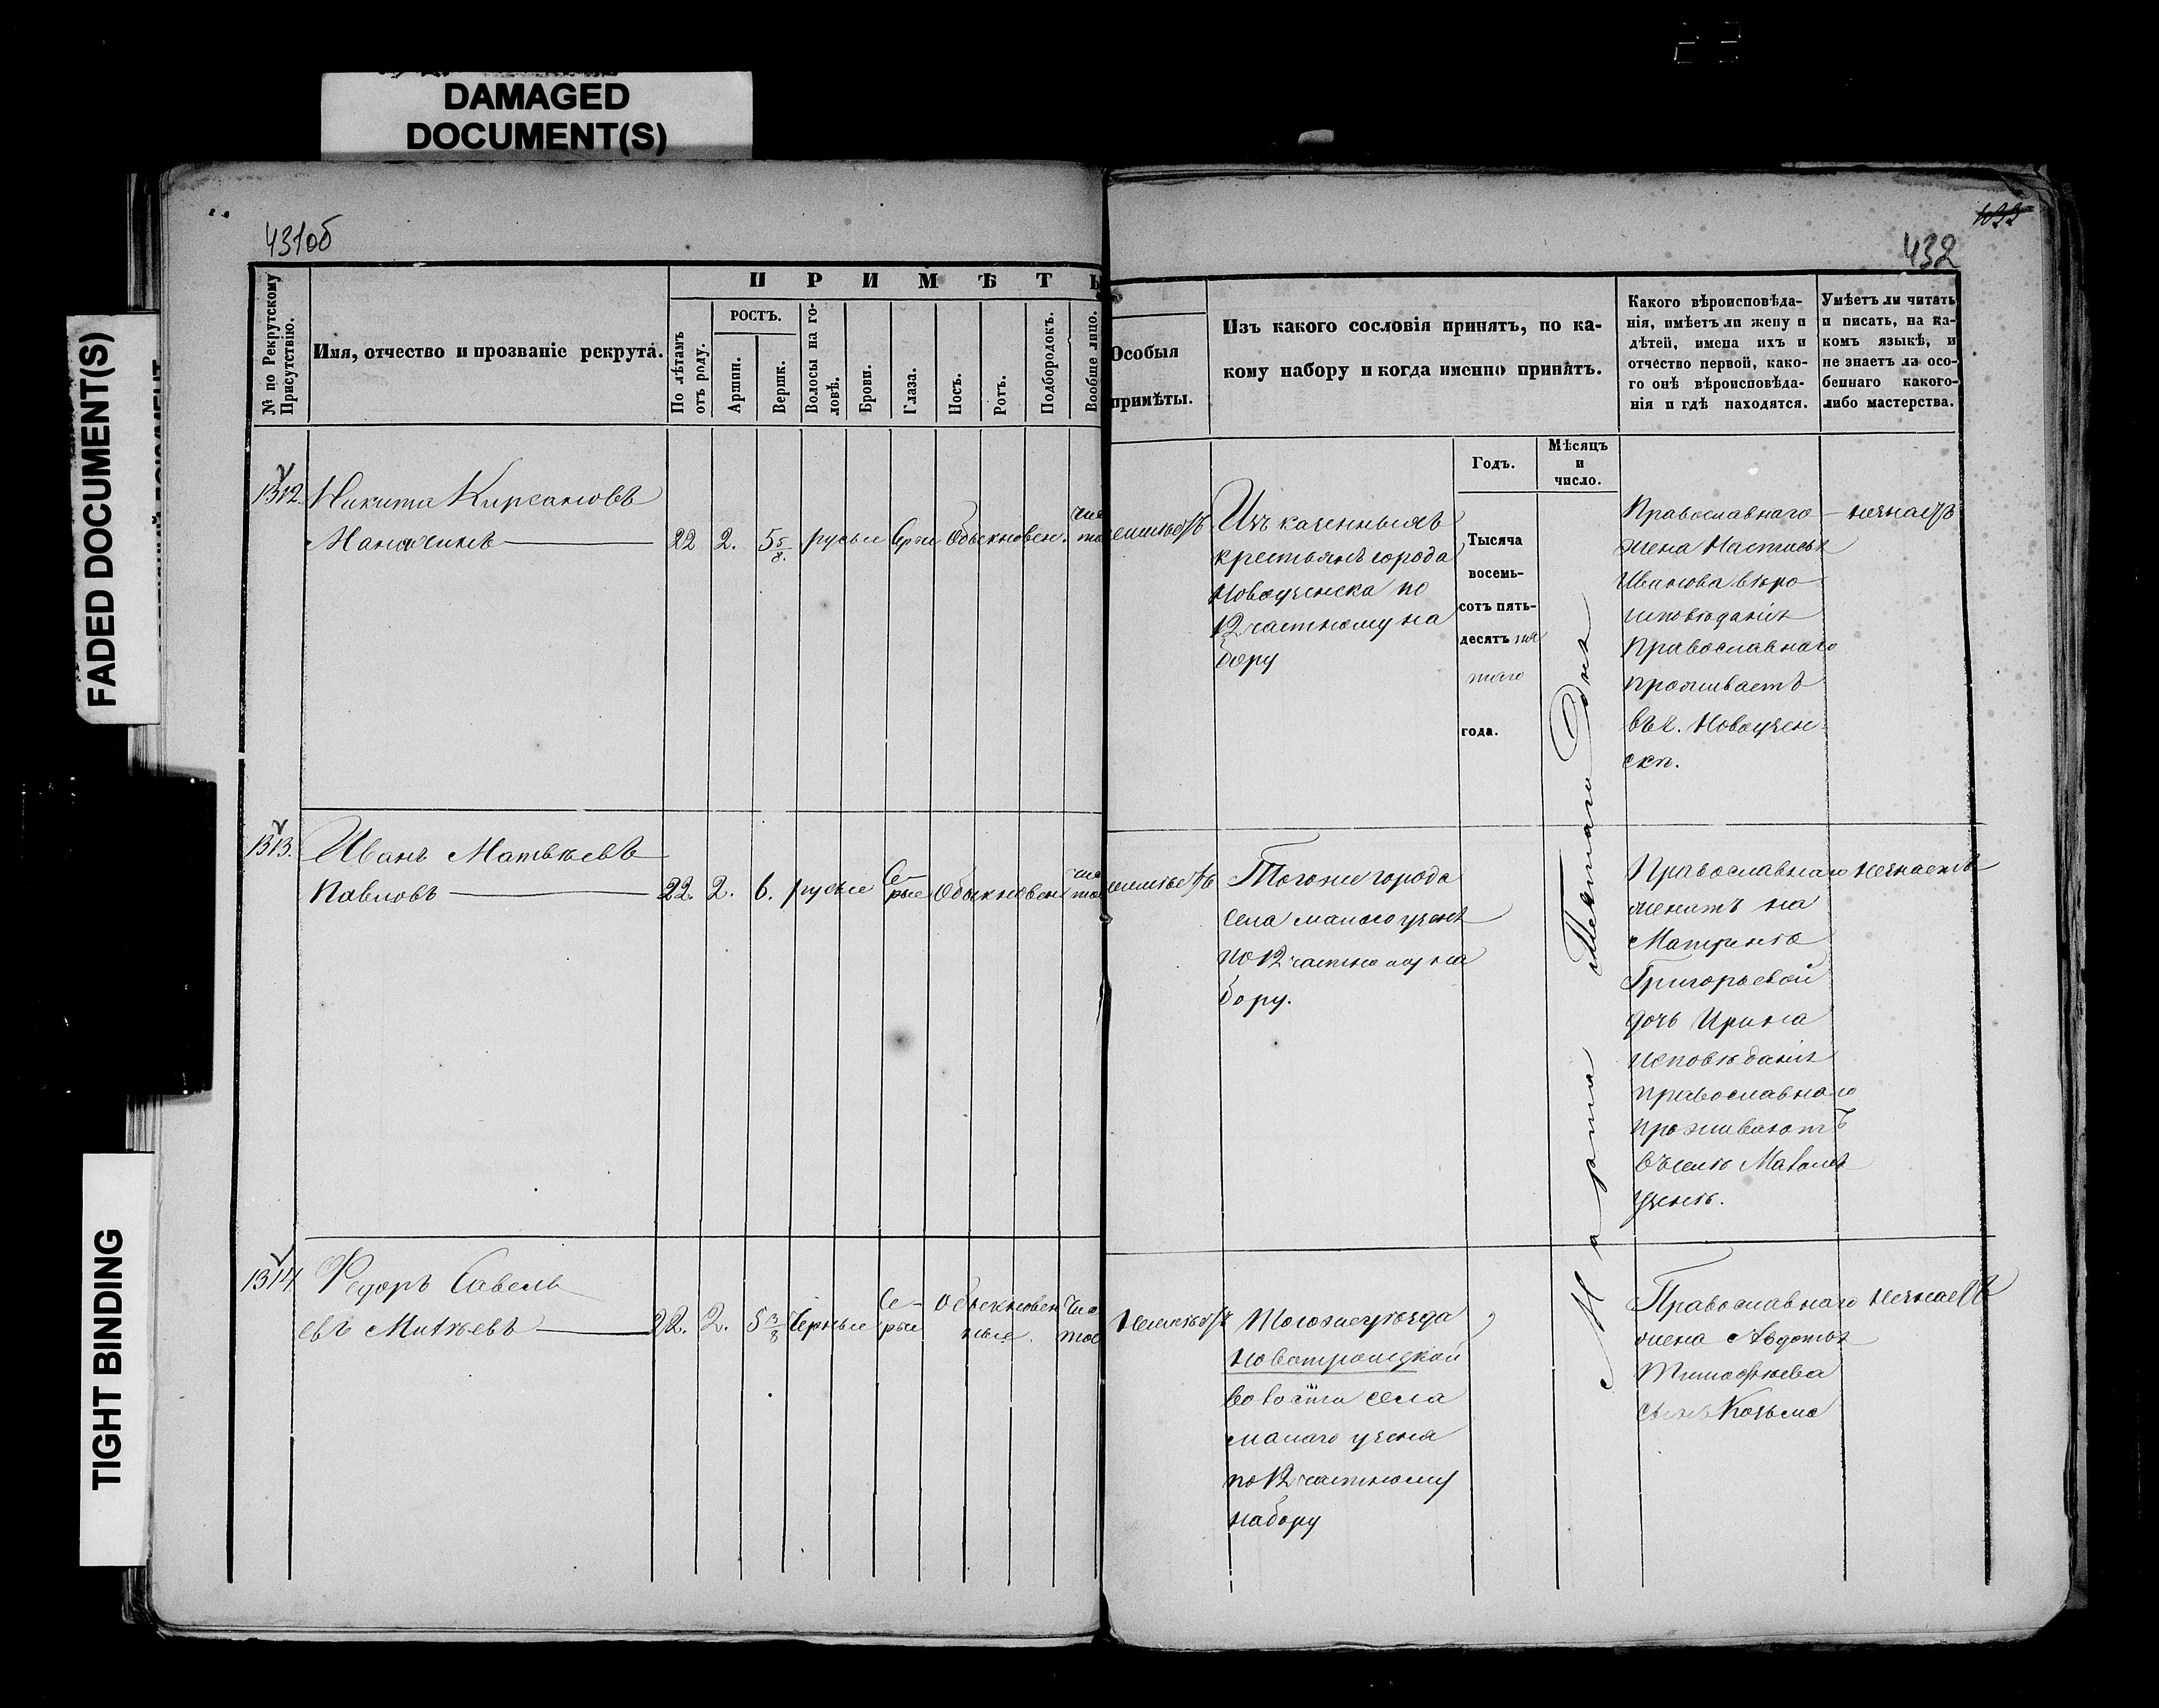 DAMAGED
DOCUMENT(S)
FADED DOCUMENT(S)
TIGHT BINDING
431об
432
П Р И М Ѣ Т Ы
№ по Рекрутскому
Присутствію.
Имя, отчество и прозваніе рекрута.
По лѣтамъ
отъ роду.
РОСТЪ.
Аршин.
Вершк.
Волосы на го-
ловѣ.
Брови.
Глаза.
Носъ.
Ротъ.
Подбородокъ.
Вообще лицо.
Особыя
примѣты.
Изъ какого сословія принятъ, по ка-
кому набору и когда именно принятъ.
Какого вѣроисповѣда-
нія, имѣетъ ли жену и
дѣтей, имена ихъ и
отчество первой, како-
го онѣ вѣроисповѣда-
нія и гдѣ находятся.
Умѣетъ ли читать
и писать, на ка-
комъ языкѣ, и
не знаетъ ли осо-
беннаго какого-
либо мастерства.
Годъ.
Мѣсяцъ
и
число.
1312.
Никита Кирсановъ
22 2. 5 5/8. русые Серые Обыкновен.
Изъ казенныхъ
крестьянъ города
Новоузенска по
12 частному на
бору
Тысяча
восемь-
сотъ пять-
десятъ пя
таго
года.
Марта
Православнаго
жена Настасья
Иванова вѣро
исповѣданія
Православнаго
проживаетъ
въ г. Новоузен-
скѣ.
незнаетъ
1313.
Иванъ Матвѣевъ
Павловъ
22. 2. 6. русые Се-
рые Обыкновен
Тогоже города
села малого узеня
по 12 частному на
бору.
Православнаго
женатъ на
Матренѣ
Григорьевой
дочь Ирина
исповѣданія
православнаго
проживаютъ
въ селѣ Маломъ
Узенѣ.
незнаетъ
1314
Федоръ Савель
евъ Матвѣевъ
22. 2. 5 3/8 Черные Се-
рые Обыкновен
ные. Чис
тое
Неимѣетъ
Тогоже уѣзда
Новотроицкой
волости села
малаго узеня
по 12 частному
набору
Православнаго
жена Авдотья
Тимофѣева
сынъ Козьма
незнаетъ